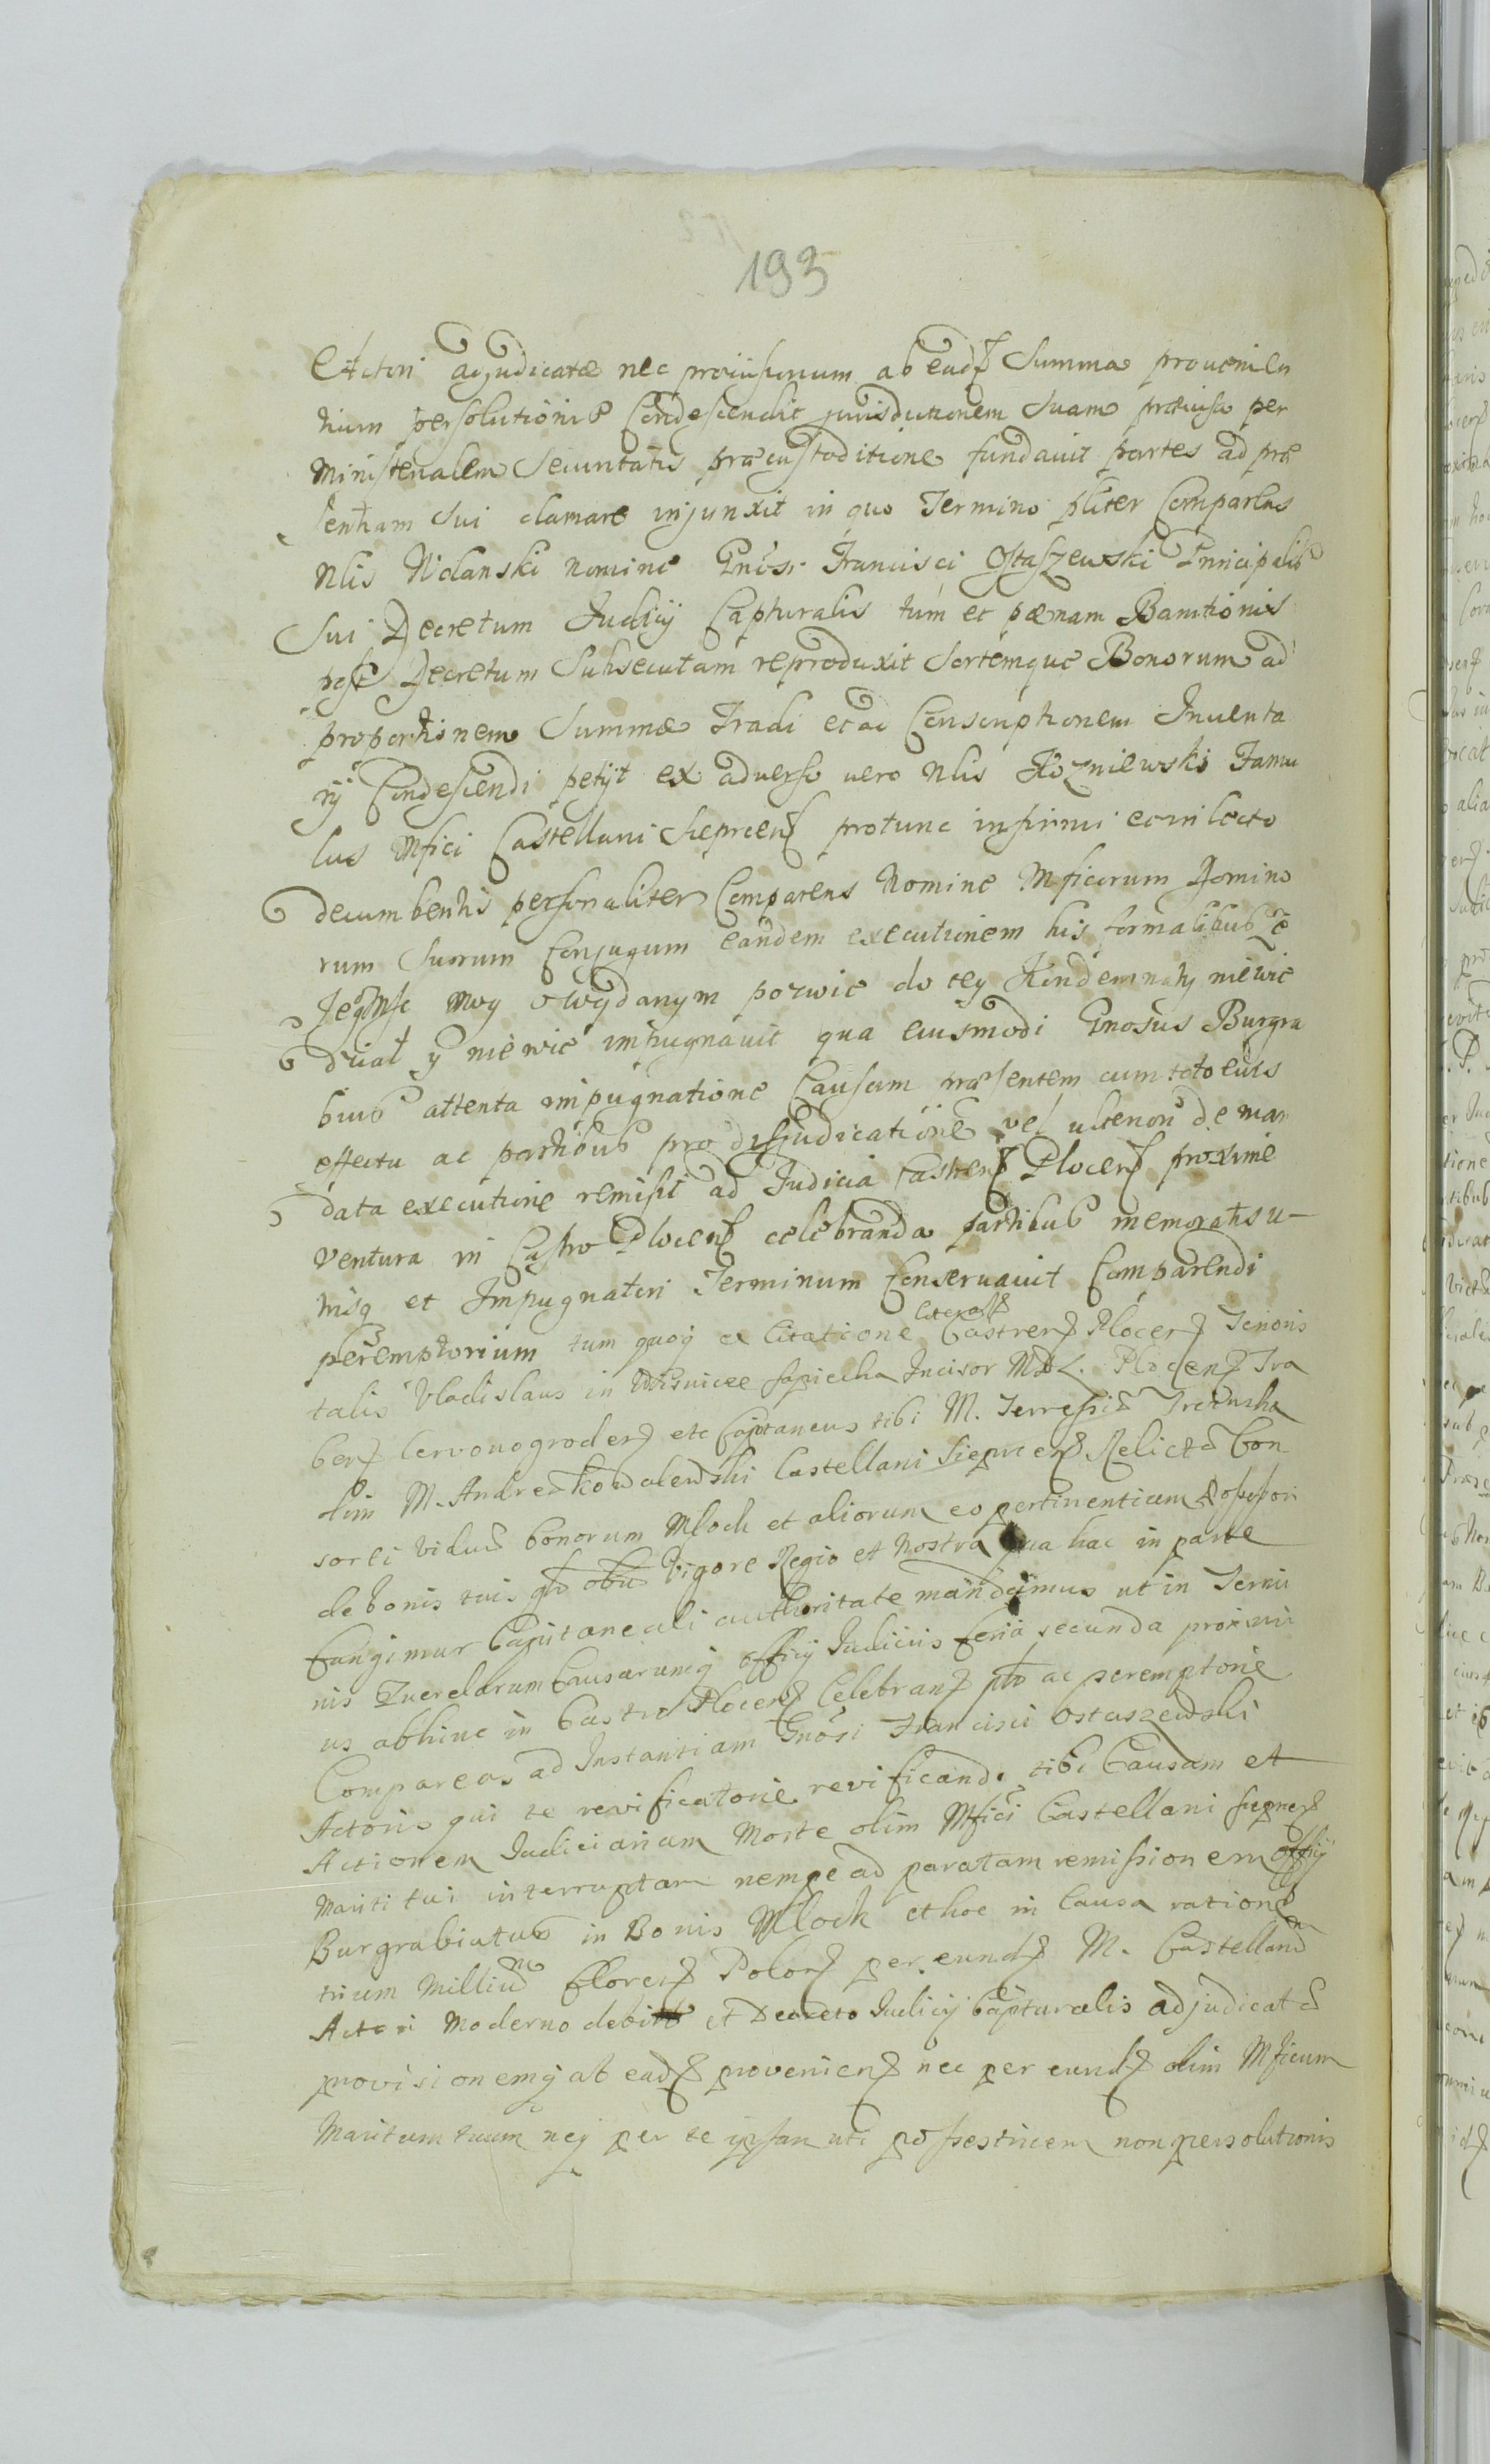 193
Actori adjudicatæ nec provisionum ab eadz Summa provenien
tium persolutionis Condescendit jurisdictionem Suam prævisa per
Ministerialem Securitatis præcustoditione fundavit partes ad præ
sentiam Sui clamare injunxit in quo Termino pliter Comparens
Nlis Wolanski nomine Gnosi Francisci Ostaszewski Principalis
Sui Decretum Judicij Capturalis tum et pænam Banitionis
post Decretum Subsecutam reproduxit Sortemque Bonorum ad
proportionem Summæ Tradi et ad Conscriptionem Inventa
rij Condescendi petijt ex adverso vero Nlis Kozniewski Famu
lus Mfici Castellani Sieprcenz protunc infirmi et in lecto
decumbentis personaliter Comparens Nomine Mficorum Domino
rum Suorum Conjugum eandem executionem his formalibus že
Jegomsc moy o wydanym pozwie do tey Kondemnaty niewie
dział y nie wie impugnavit qua eiusmodi Gnosus Burgra
bius attenta impugnatione Causam præsentem cum toto eius
effectu ac partibus pro disjudicatione vel ulteriori deman
data executione remisit ad Judicia Castrenz Plocenz proxime
ventura in Castro Plocenz celebranda partibus memoratis u-
trisq et Impugnatori Terminum Conservavit Comparendi
peremptorium tum quoq ex Citatione literali Castrenz Plocenz Tenoris
talis Vladislaus in Wisnicze Sapieha Incisor M. D. L. Plocenz Tra
benz Cervonogrodenz etc Capitaneus tibi M. Teressiæ
olim M. Andreæ Kowalewski Castellani Sieprcenz Relictæ Con
sorti viduæ bonorum Mlock et aliorum eo pertinentium Possessori
de bonis tuis gnlr obus Vigore Regio et Nostra qua hac in parte
fungimur Capitaneali authoritate mandamus ut in Termi
nis Querelarum Causarumq officij Judiciis feria secunda proximi
us abhinc in Castro Plocenz Celebranz plr ac peremptorie
Compareas ad Instantiam Gnosi Francisci Ostaszewski
Actoris qui te revificatorie revificando tibi Causam et
Actionem Judiciariam Morte olim Mfici Castellani Sieprcenz
Mariti tui interruptam nempe ad paratam remissionem officij
Burgrabiatus in Bonis Mlock et hoc in Causa ratione
trium Millium florenz Polonz per eundz M. Castellanum
Actori Moderno debit et Decreto Judicij Capturalis adjudicatæ
provisionemq ab eadz provenienz nec per eundz olim Mficum
Maritum tuum neq per te ipsam uti possestricem non persolutionis